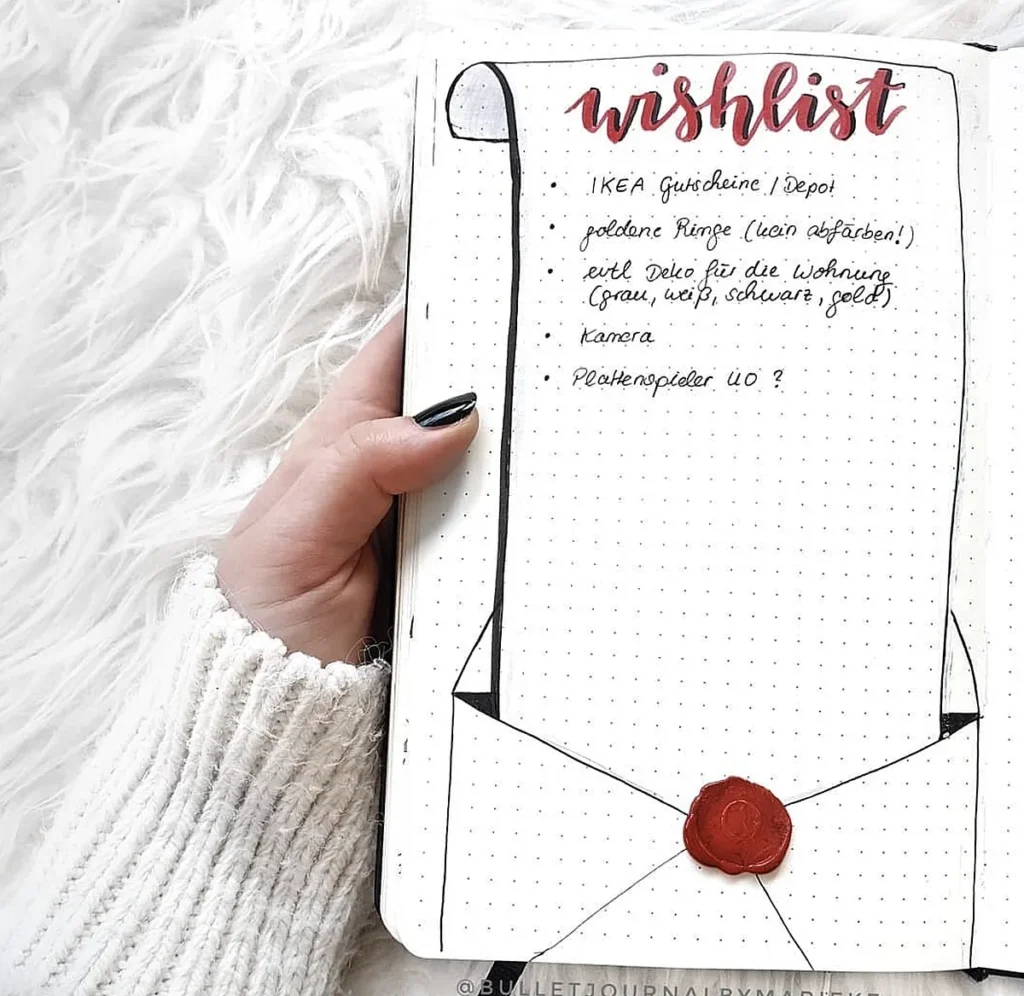 wishlist
• IKEA Gutscheine / Depot
• goldene Ringe (kein abfärben!)
• evtl Deko für die Wohnung
(grau, weiß, schwarz, gold)
• Kamera
• Plattenspieler UO ?
@BULLETJOURNALBYMARIEKE